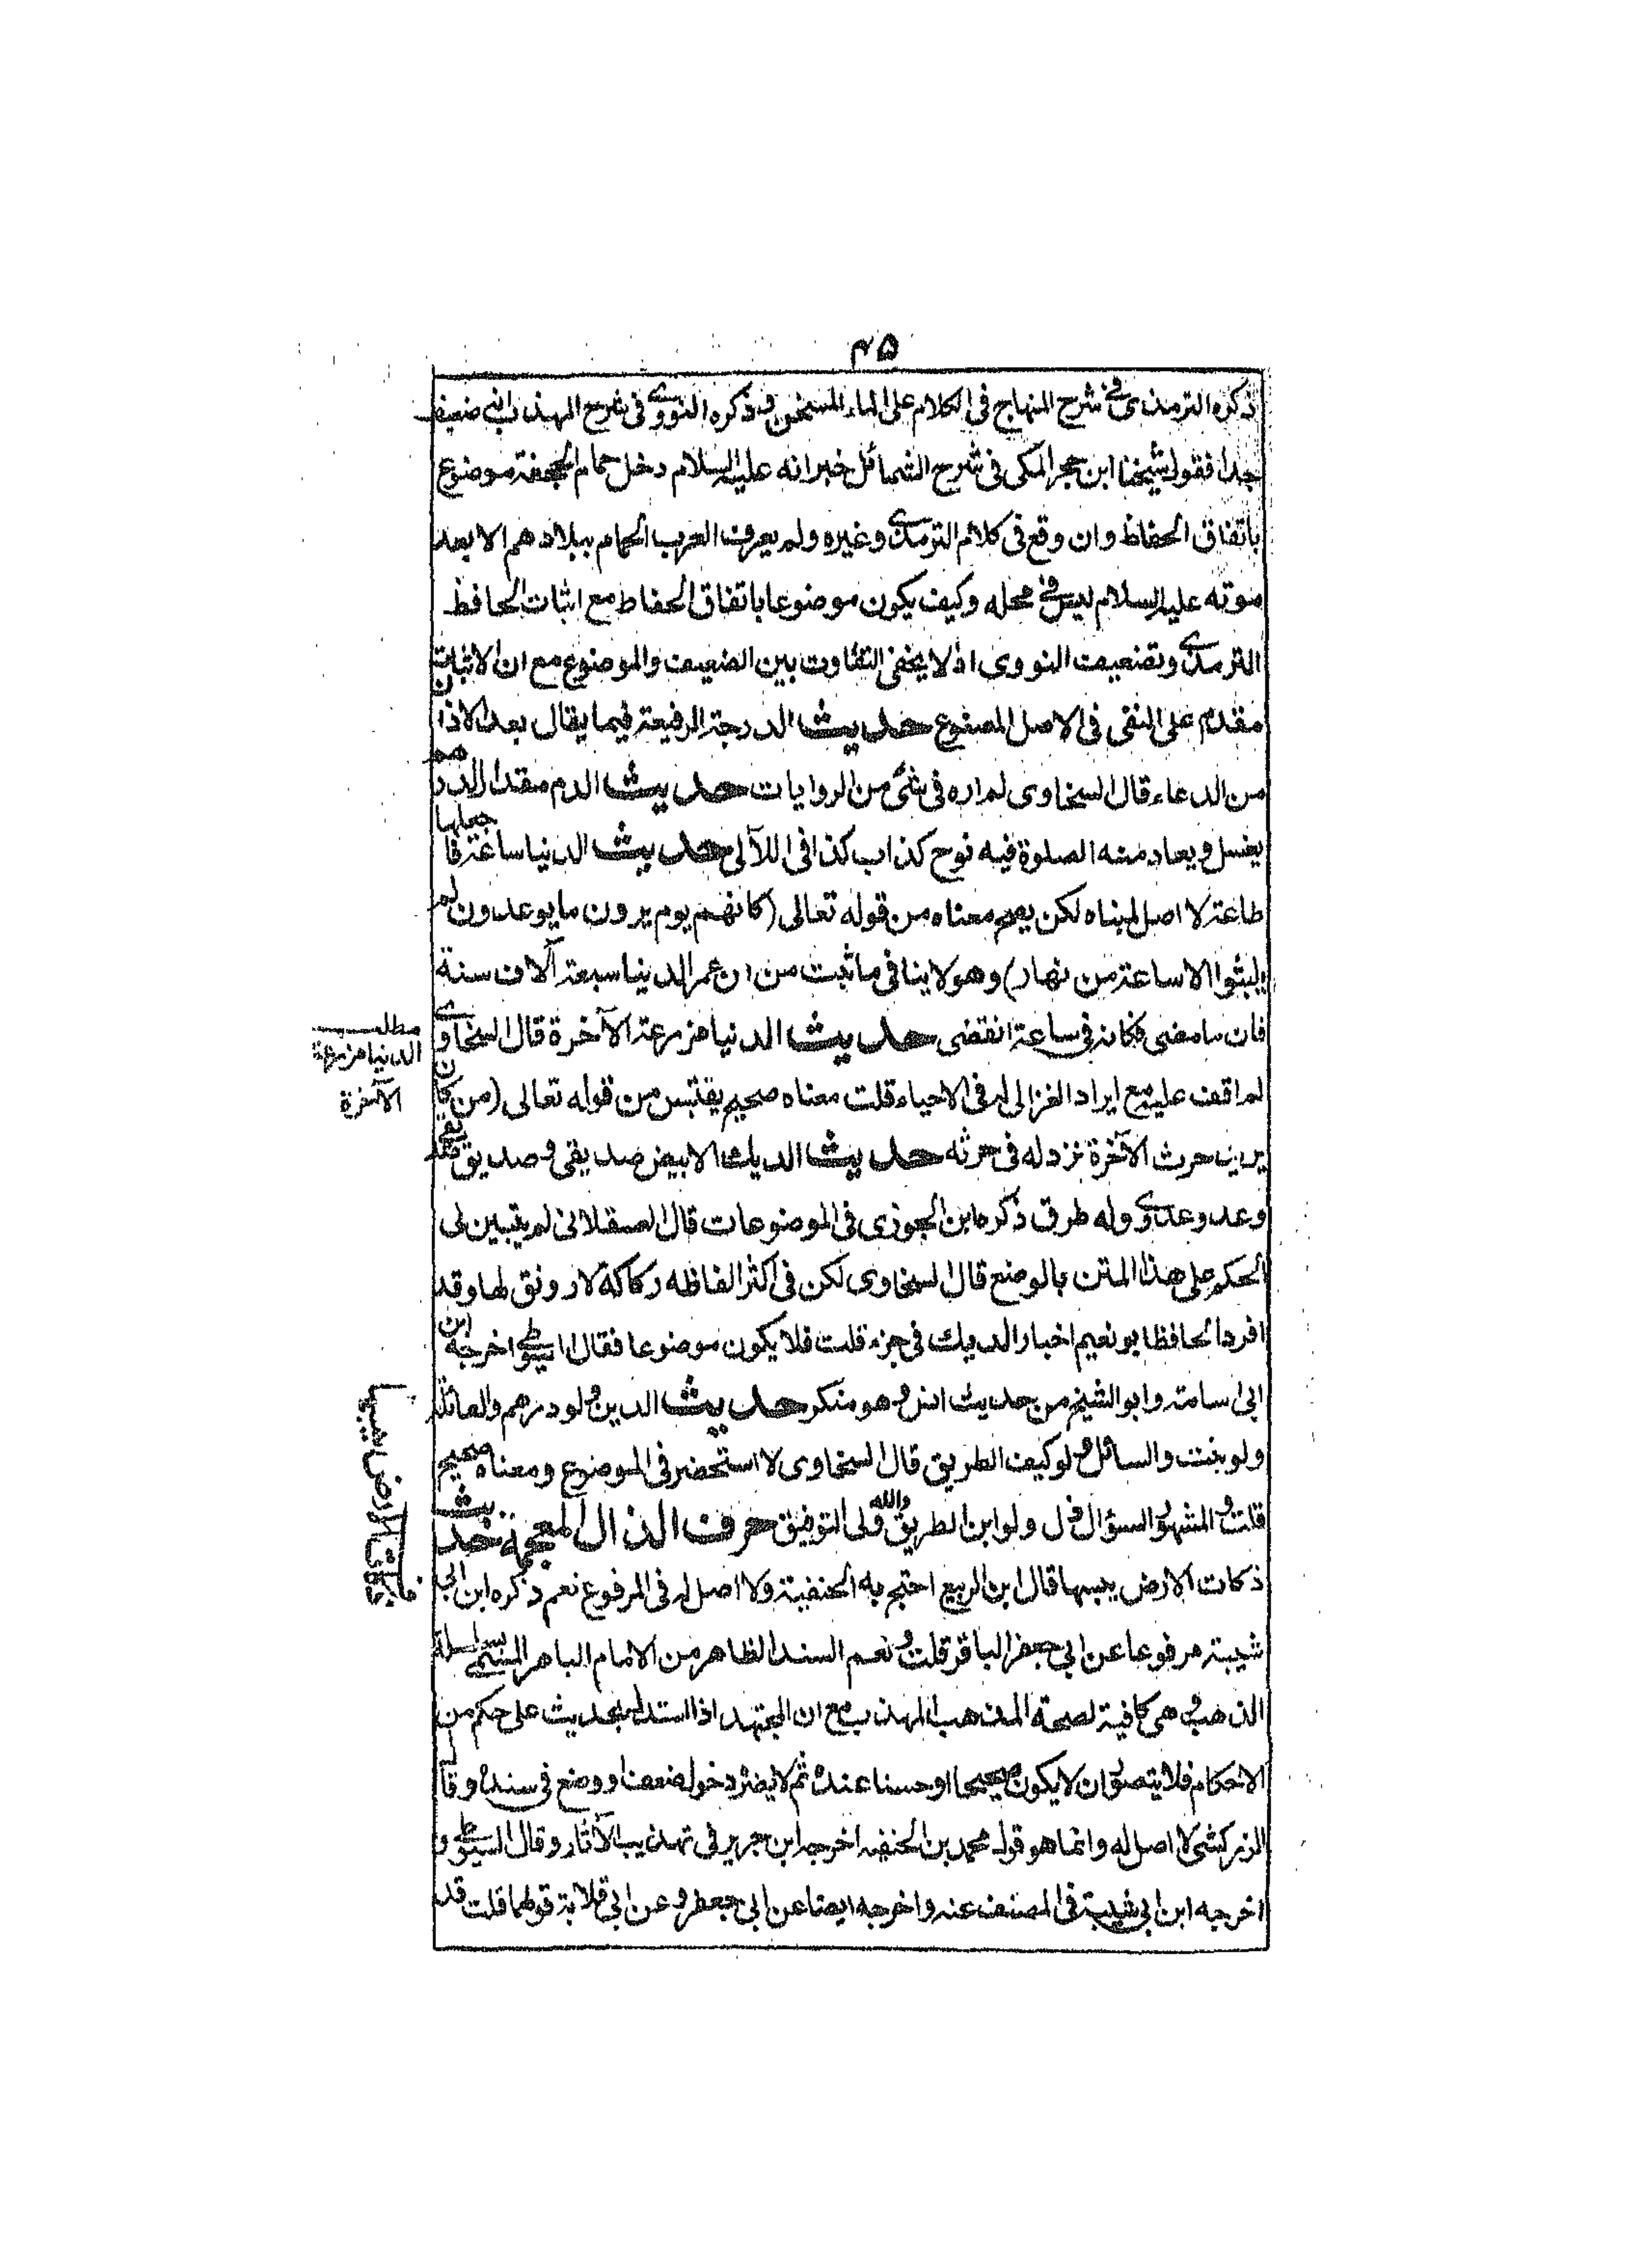 ٤٥
ذكره الترمذى فى شرح المنهاج فى الكلام على الماء المسخن وذكره النووى فى شرح المهذب انه ضعيف
جدا فقول شيخنا ابن حجر المكى فى شرح الشمائل خبر انه عليه السلام دخل حمام الجحفة موضوع
باتفاق الحفاظ وان وقع فى كلام الترمذى وغيره ولم يعرف العرب الحمام ببلادهم الا بعد
موته عليه السلام ليس فى محله وكيف يكون موضوعا باتفاق الحفاط مع اثبات الحافظ
الترمذى وتضعيف النووى اذ لا يخفى التفاوت بين الضعيف والموضوع مع ان الاثبات
مقدم على النفى فى الاصل المصنوع حديث الدرجة الرفيعة فيما يقال بعد الاذان
من الدعاء قال السخاوى لم اره فى شئ من الروايات حديث الدم مقدار الدرهم
يغسل ويعاد منه الصلوة فيه نوح كذاب كذا فى اللآلى حديث الدنيا ساعة فاجعلها
طاعة لا اصل لمبناه لكن يصح معناه من قوله تعالى (كانهم يوم يرون ما يوعدون لم
يلبثوا الا ساعة من نهار) وهو لا ينافى ما ثبت من ان عمر الدنيا سبعة آلاف سنة
فان ما مضى فكانه فى ساعة انقضى حديث الدنيا مزرعة الآخرة قال السخاوى
لم اقف عليه مع ايراد الغزالى له فى الاحياء قلت معناه صحيح يقتبس من قوله تعالى (من كان
يريد حرث الآخرة نزد له فى حرثه حديث الديك الابيض صديقى وصديق صديقى
وعدو عدوى وله طرق ذكره ابن الجوزى فى الموضوعات قال العسقلانى لم يتبين لى
الحكم على هذا المتن بالوضع قال السخاوى لكن فى اكثر الفاظه ركاكة لا رونق لها وقد
افرد الحافظ ابو نعيم اخبار الديك فى جزء قلت فلا يكون موضوعا فقال السيوطى اخرجه ابن
ابى اسامة وابو الشيخ من حديث انس وهو منكر حديث الدين ولو درهم والعائلة
ولو بنت والسائل ولو كيف الطريق قال السخاوى لا استحضر فى الموضوع ومعناه صحيح
قلت والمشهور السؤال ذل ولو اين الطريق والله ولى التوفيق حرف الذال المعجمة حديث
ذكات الارض يبسها قال ابن الربيع احتج به الحنفية ولا اصل له فى المرفوع نعم ذكره ابن ابى
شيبة مرفوعا عن ابى جعفر الباقر قلت ونعم السند الظاهر من الامام الباهر المسمى بسلسلة
الذهب وهى كافية لصحة المذهب المهذب مع ان المجتهد اذا استدل بحديث على حكم من
الاحكام فلا يتصور ان لا يكون صحيحا او حسنا عنده ثم لا يضر دخول ضعف او وضع فى سنده وقال
الزركشى لا اصل له وانما هو قول محمد بن الحنفيه اخرجه ابن جرير فى تهذيب الآثار وقال السيوطى و
اخرجه ابن ابى شيبة فى المصنف عنه واخرجه ايضا عن ابى جعفر وعن ابى قلابة قولهما قلت قد
مطلب
الدنيا مزرعة
الآخرة
الارض يبسها